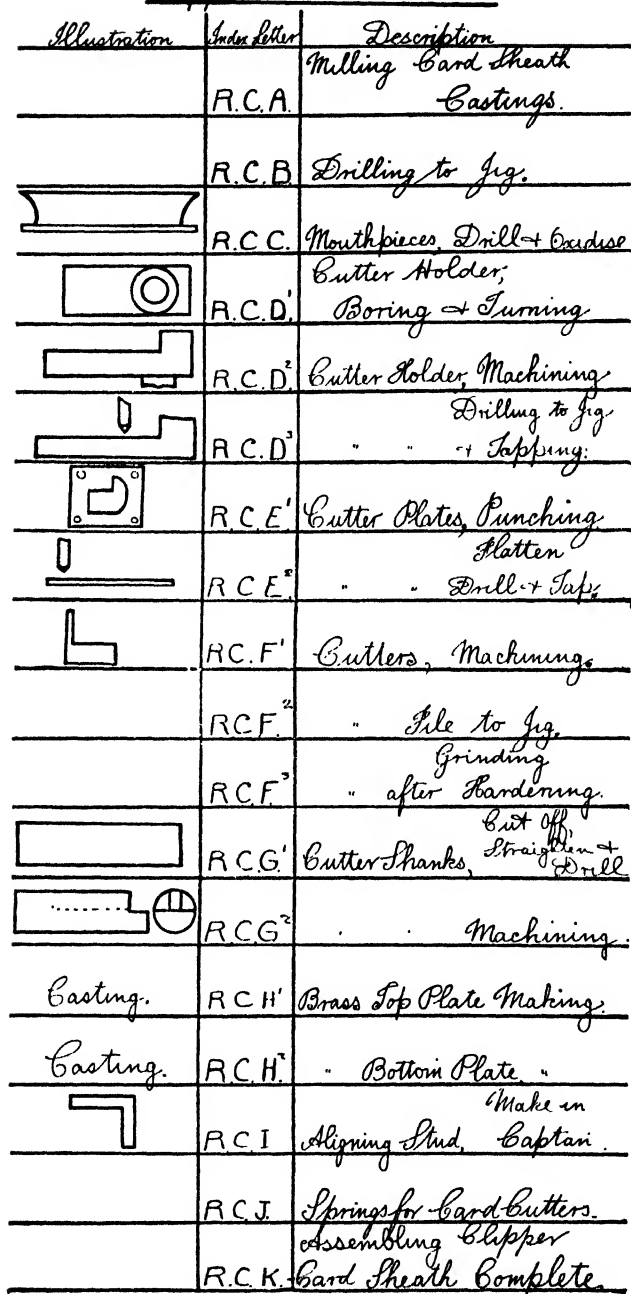 Illustration Index Letter Description
R.C.A. Milling Card Sheath
Castings.
R.C.B. Drilling to Jig.
R.C C. Mouthpieces, Drill & Oxidise
R.C.D¹. Cutter Holder;
Boring & Turning
R.C.D². Cutter Holder, Machining
R.C.D³ Drilling to Jig
" " & Tapping.
R.C.E¹ Cutter Plates, Punching
Flatten
R C E². " " Drill & Tap.
R C. F¹ Cutters, Machining.
R C F.² " File to Jig.
Grinding
R C F.³ " after Hardening.
Cut Off,
R.C.G¹. Cutter Shanks, Straighten &
Drill
R.C.G² " " Machining.
Casting. R C H¹ Brass Top Plate Making.
Casting. R.C.H². " Bottom Plate "
Make in
R.C I Aligning Stud, Captan.
R C J. Springs for Card Cutters.
Assembling Clipper
R.C. K. Card Sheath Complete.